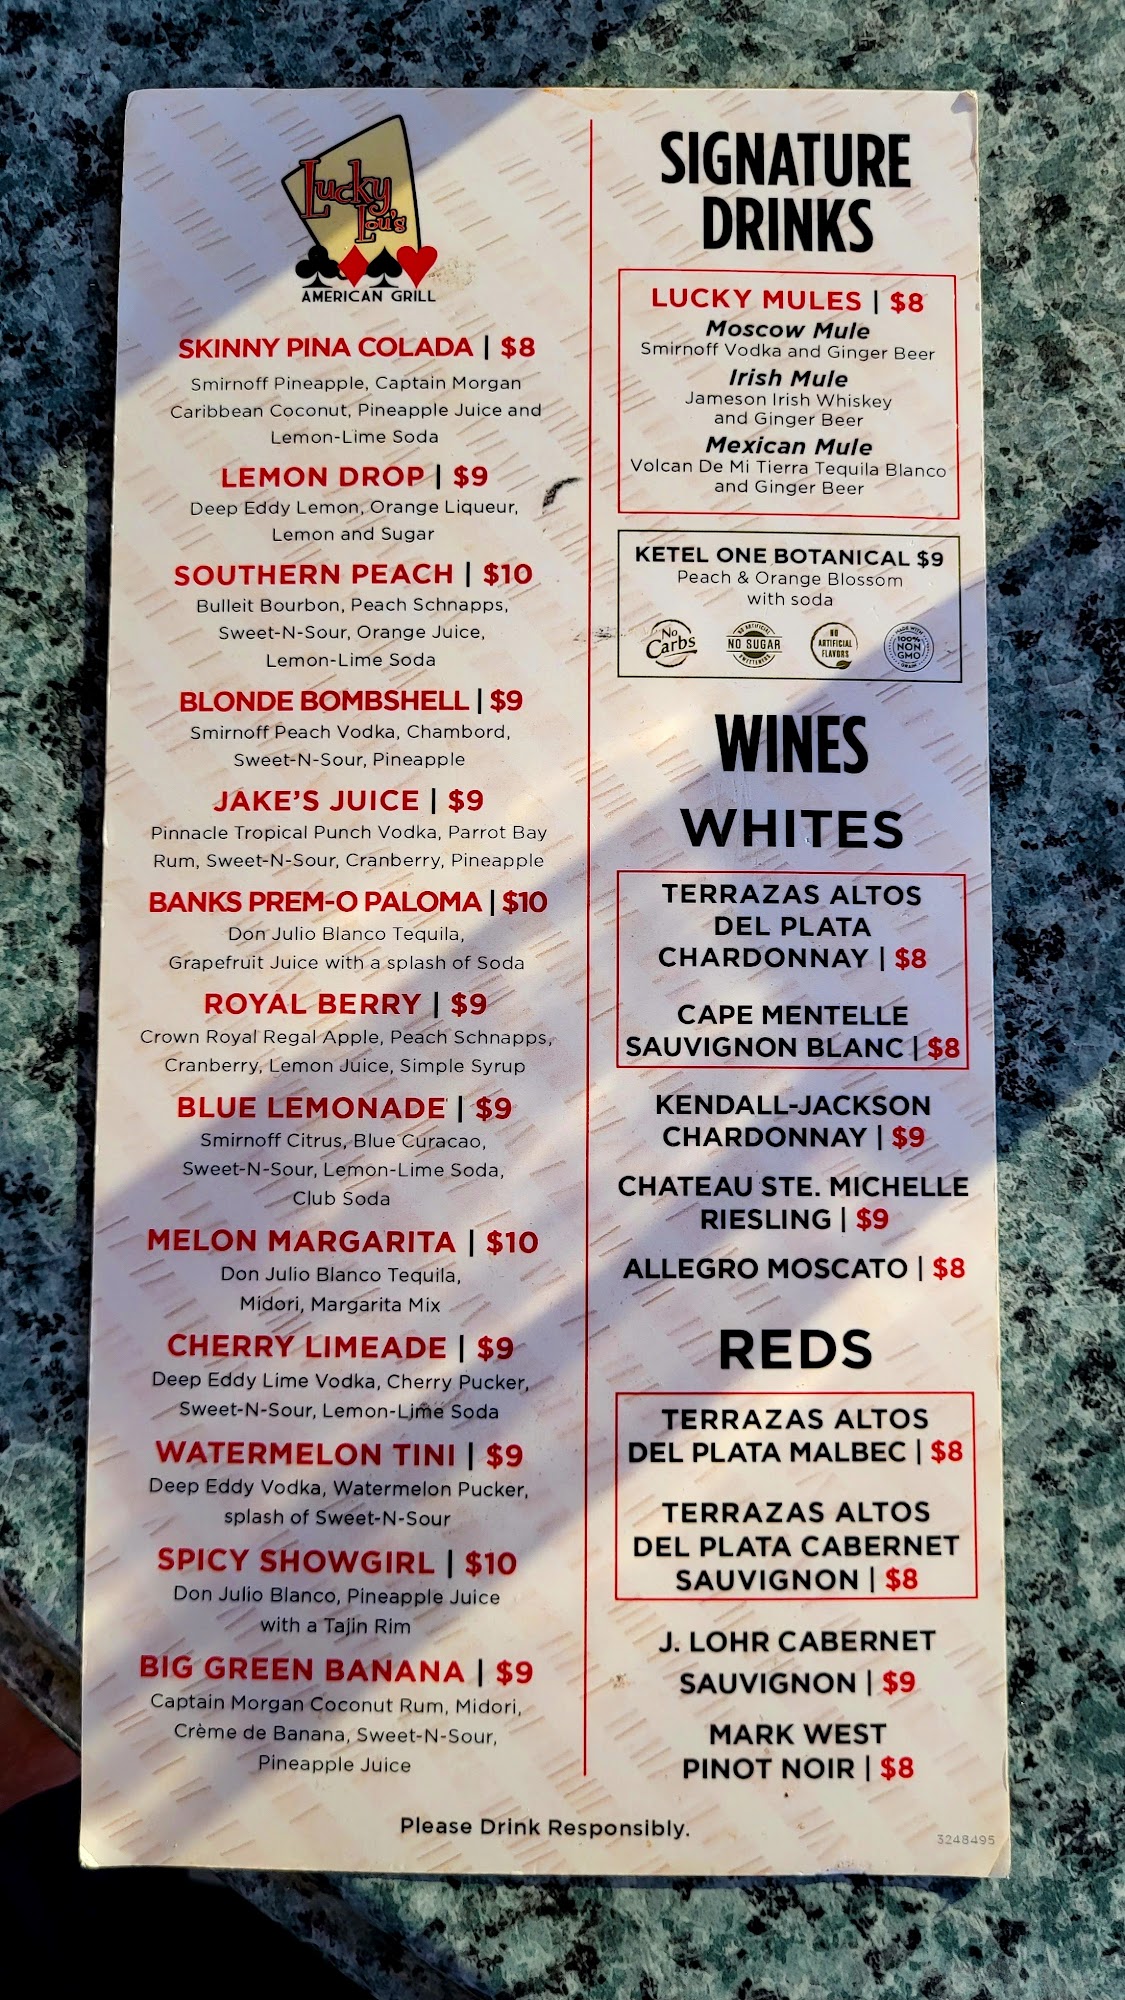 Lucky
Lou's
AMERICAN GRILL
SKINNY PINA COLADA | $8
Smirnoff Pineapple, Captain Morgan
Caribbean Coconut, Pineapple Juice and
Lemon-Lime Soda
LEMON DROP | $9
Deep Eddy Lemon, Orange Liqueur,
Lemon and Sugar
SOUTHERN PEACH | $10
Bulleit Bourbon, Peach Schnapps,
Sweet-N-Sour, Orange Juice,
Lemon-Lime Soda
BLONDE BOMBSHELL | $9
Smirnoff Peach Vodka, Chambord,
Sweet-N-Sour, Pineapple
JAKE'S JUICE | $9
Pinnacle Tropical Punch Vodka, Parrot Bay
Rum, Sweet-N-Sour, Cranberry, Pineapple
BANKS PREM-O PALOMA | $10
Don Julio Blanco Tequila,
Grapefruit Juice with a splash of Soda
ROYAL BERRY | $9
Crown Royal Regal Apple, Peach Schnapps,
Cranberry, Lemon Juice, Simple Syrup
BLUE LEMONADE | $9
Smirnoff Citrus, Blue Curacao,
Sweet-N-Sour, Lemon-Lime Soda,
Club Soda
MELON MARGARITA | $10
Don Julio Blanco Tequila,
Midori, Margarita Mix
CHERRY LIMEADE | $9
Deep Eddy Lime Vodka, Cherry Pucker,
Sweet-N-Sour, Lemon-Lime Soda
WATERMELON TINI | $9
Deep Eddy Vodka, Watermelon Pucker,
splash of Sweet-N-Sour
SPICY SHOWGIRL | $10
Don Julio Blanco, Pineapple Juice
with a Tajin Rim
BIG GREEN BANANA | $9
Captain Morgan Coconut Rum, Midori,
Crème de Banana, Sweet-N-Sour,
Pineapple Juice
SIGNATURE
DRINKS
LUCKY MULES | $8
Moscow Mule
Smirnoff Vodka and Ginger Beer
Irish Mule
Jameson Irish Whiskey
and Ginger Beer
Mexican Mule
Volcan De Mi Tierra Tequila Blanco
and Ginger Beer
KETEL ONE BOTANICAL $9
Peach & Orange Blossom
with soda
No
Carbs
NO ARTIFICIAL
NO SUGAR
SWEETENERS
NO
ARTIFICIAL
FLAVORS
MADE WITH
100%
NON
GMO
GRAIN
WINES
WHITES
TERRAZAS ALTOS
DEL PLATA
CHARDONNAY | $8
CAPE MENTELLE
SAUVIGNON BLANC | $8
KENDALL-JACKSON
CHARDONNAY | $9
CHATEAU STE. MICHELLE
RIESLING | $9
ALLEGRO MOSCATO | $8
REDS
TERRAZAS ALTOS
DEL PLATA MALBEC | $8
TERRAZAS ALTOS
DEL PLATA CABERNET
SAUVIGNON | $8
J. LOHR CABERNET
SAUVIGNON | $9
MARK WEST
PINOT NOIR | $8
Please Drink Responsibly.
3248495